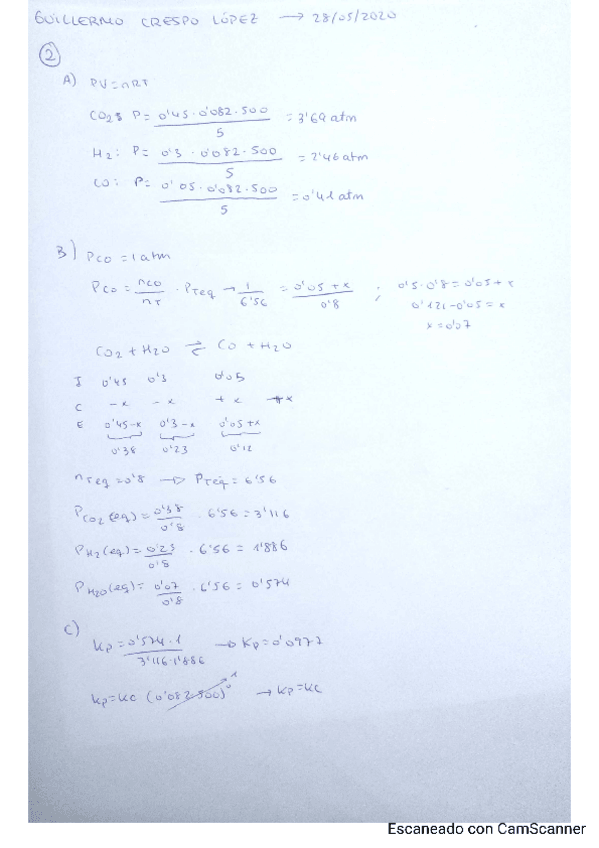 GUILLERMO CRESPO LÓPEZ → 28/05/2020
②
A) PV=nRT
CO2: P= 0'45·0'082·500 / 5 = 3'69 atm
H2: P= 0'3·0'082·500 / 5 = 2'46 atm
CO: P= 0'05·0'082·500 / 5 = 0'41 atm
B) PCO = 1 atm
PCO = nCO / nT · PTeq → 1 / 6'56 = 0'05+x / 0'8 ; 0'5·0'8=0'05+x
0'121-0'05=x
x=0'07
CO2 + H2O ⇌ CO + H2O
I 0'45 0'3 0'05
C -x -x +x +x
E 0'45-x 0'3-x 0'05+x
0'38 0'23 0'12
nTeq=0'8 → PTeq=6'56
PCO2 (eq)= 0'38 / 0'8 · 6'56=3'116
PH2 (eq)= 0'23 / 0'8 · 6'56 = 1'886
PH2O (eq)= 0'07 / 0'8 · 6'56 = 0'574
C)
Kp= 0'574·1 / 3'116·1'886 → Kp=0'0977
Kp=Kc (0'082·500)⁰ ↗ 1 → Kp=Kc
Escaneado con CamScanner